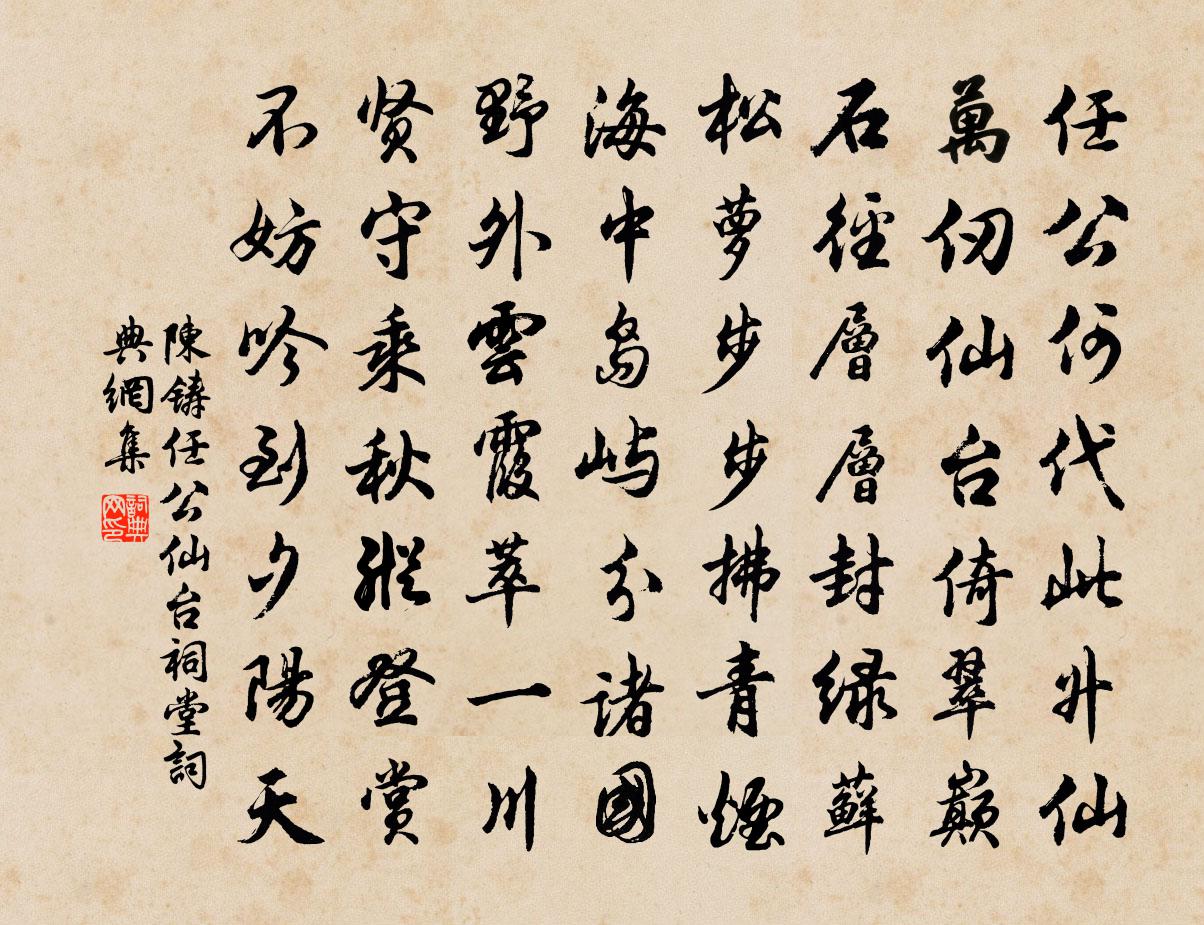 任公何代此升仙
萬仞仙台倚翠巔
石徑層層封綠蘚
松蘿步步拂青煙
海中島嶼分諸國
野外雲霞萃一川
賢守乘秋縱登賞
不妨吟到夕陽天
陳鑄任公仙台祠堂詞
典網集
詞典
网印